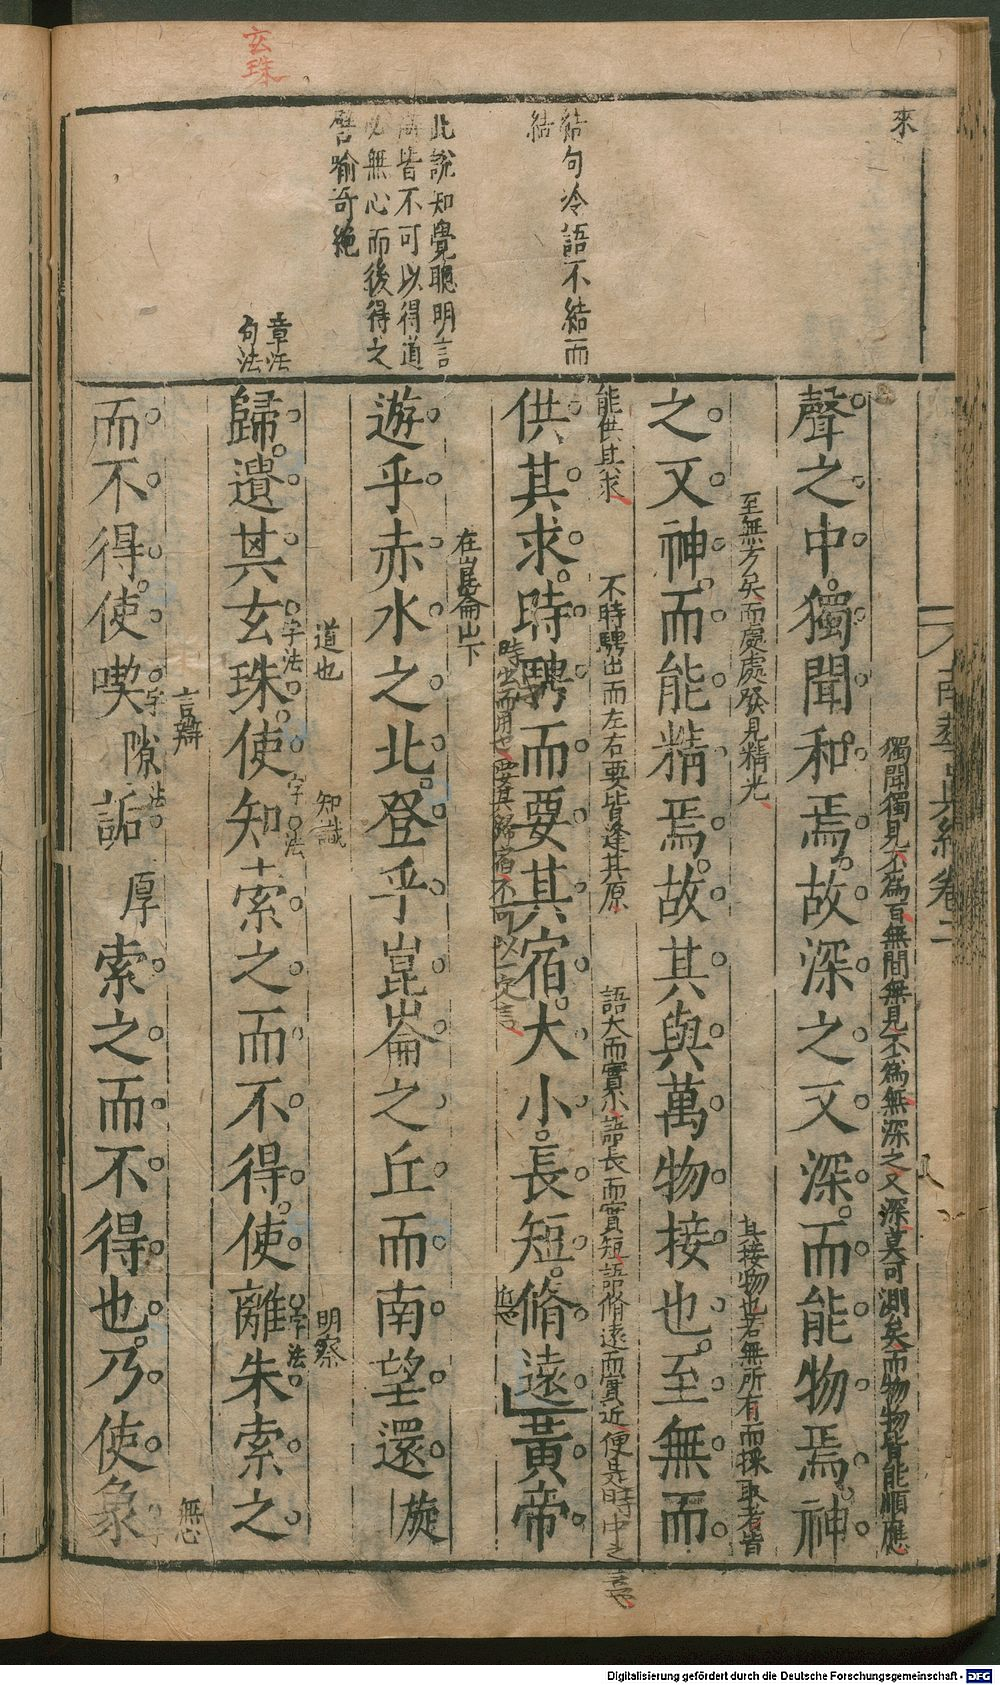 玄珠
來
結句冷語不結而
結
此說知覺聰明言
辯皆不可以得道
必無心而後得之
譬喻奇絕
章法
句法
南華真經卷二
獨聞獨見不為百無聞無見不為無深之又深莫可測矣而物物皆能順應
聲之中獨聞和焉故深之又深而能物焉神
至無方矣而處處發見精光
其接物也若無所有而採取者皆
之又神而能精焉故其與萬物接也至無而
能供其求
不時騁出而左右要皆逢其原
語大而實小語長而實短語脩遠而實近便是時中之意
供其求時騁而要其宿大小長短脩遠黃帝
時出而用也要其歸宿不可以一定言
近也
在崑崙山下
遊乎赤水之北登乎崑崙之丘而南望還旋
道也
知識
明察
歸遺其玄珠使知索之而不得使離朱索之
字法
字法
字法
言辯
無心
而不得使喫隙詬厚索之而不得也乃使象
字法
Digitalisierung gefördert durch die Deutsche Forschungsgemeinschaft - DFG